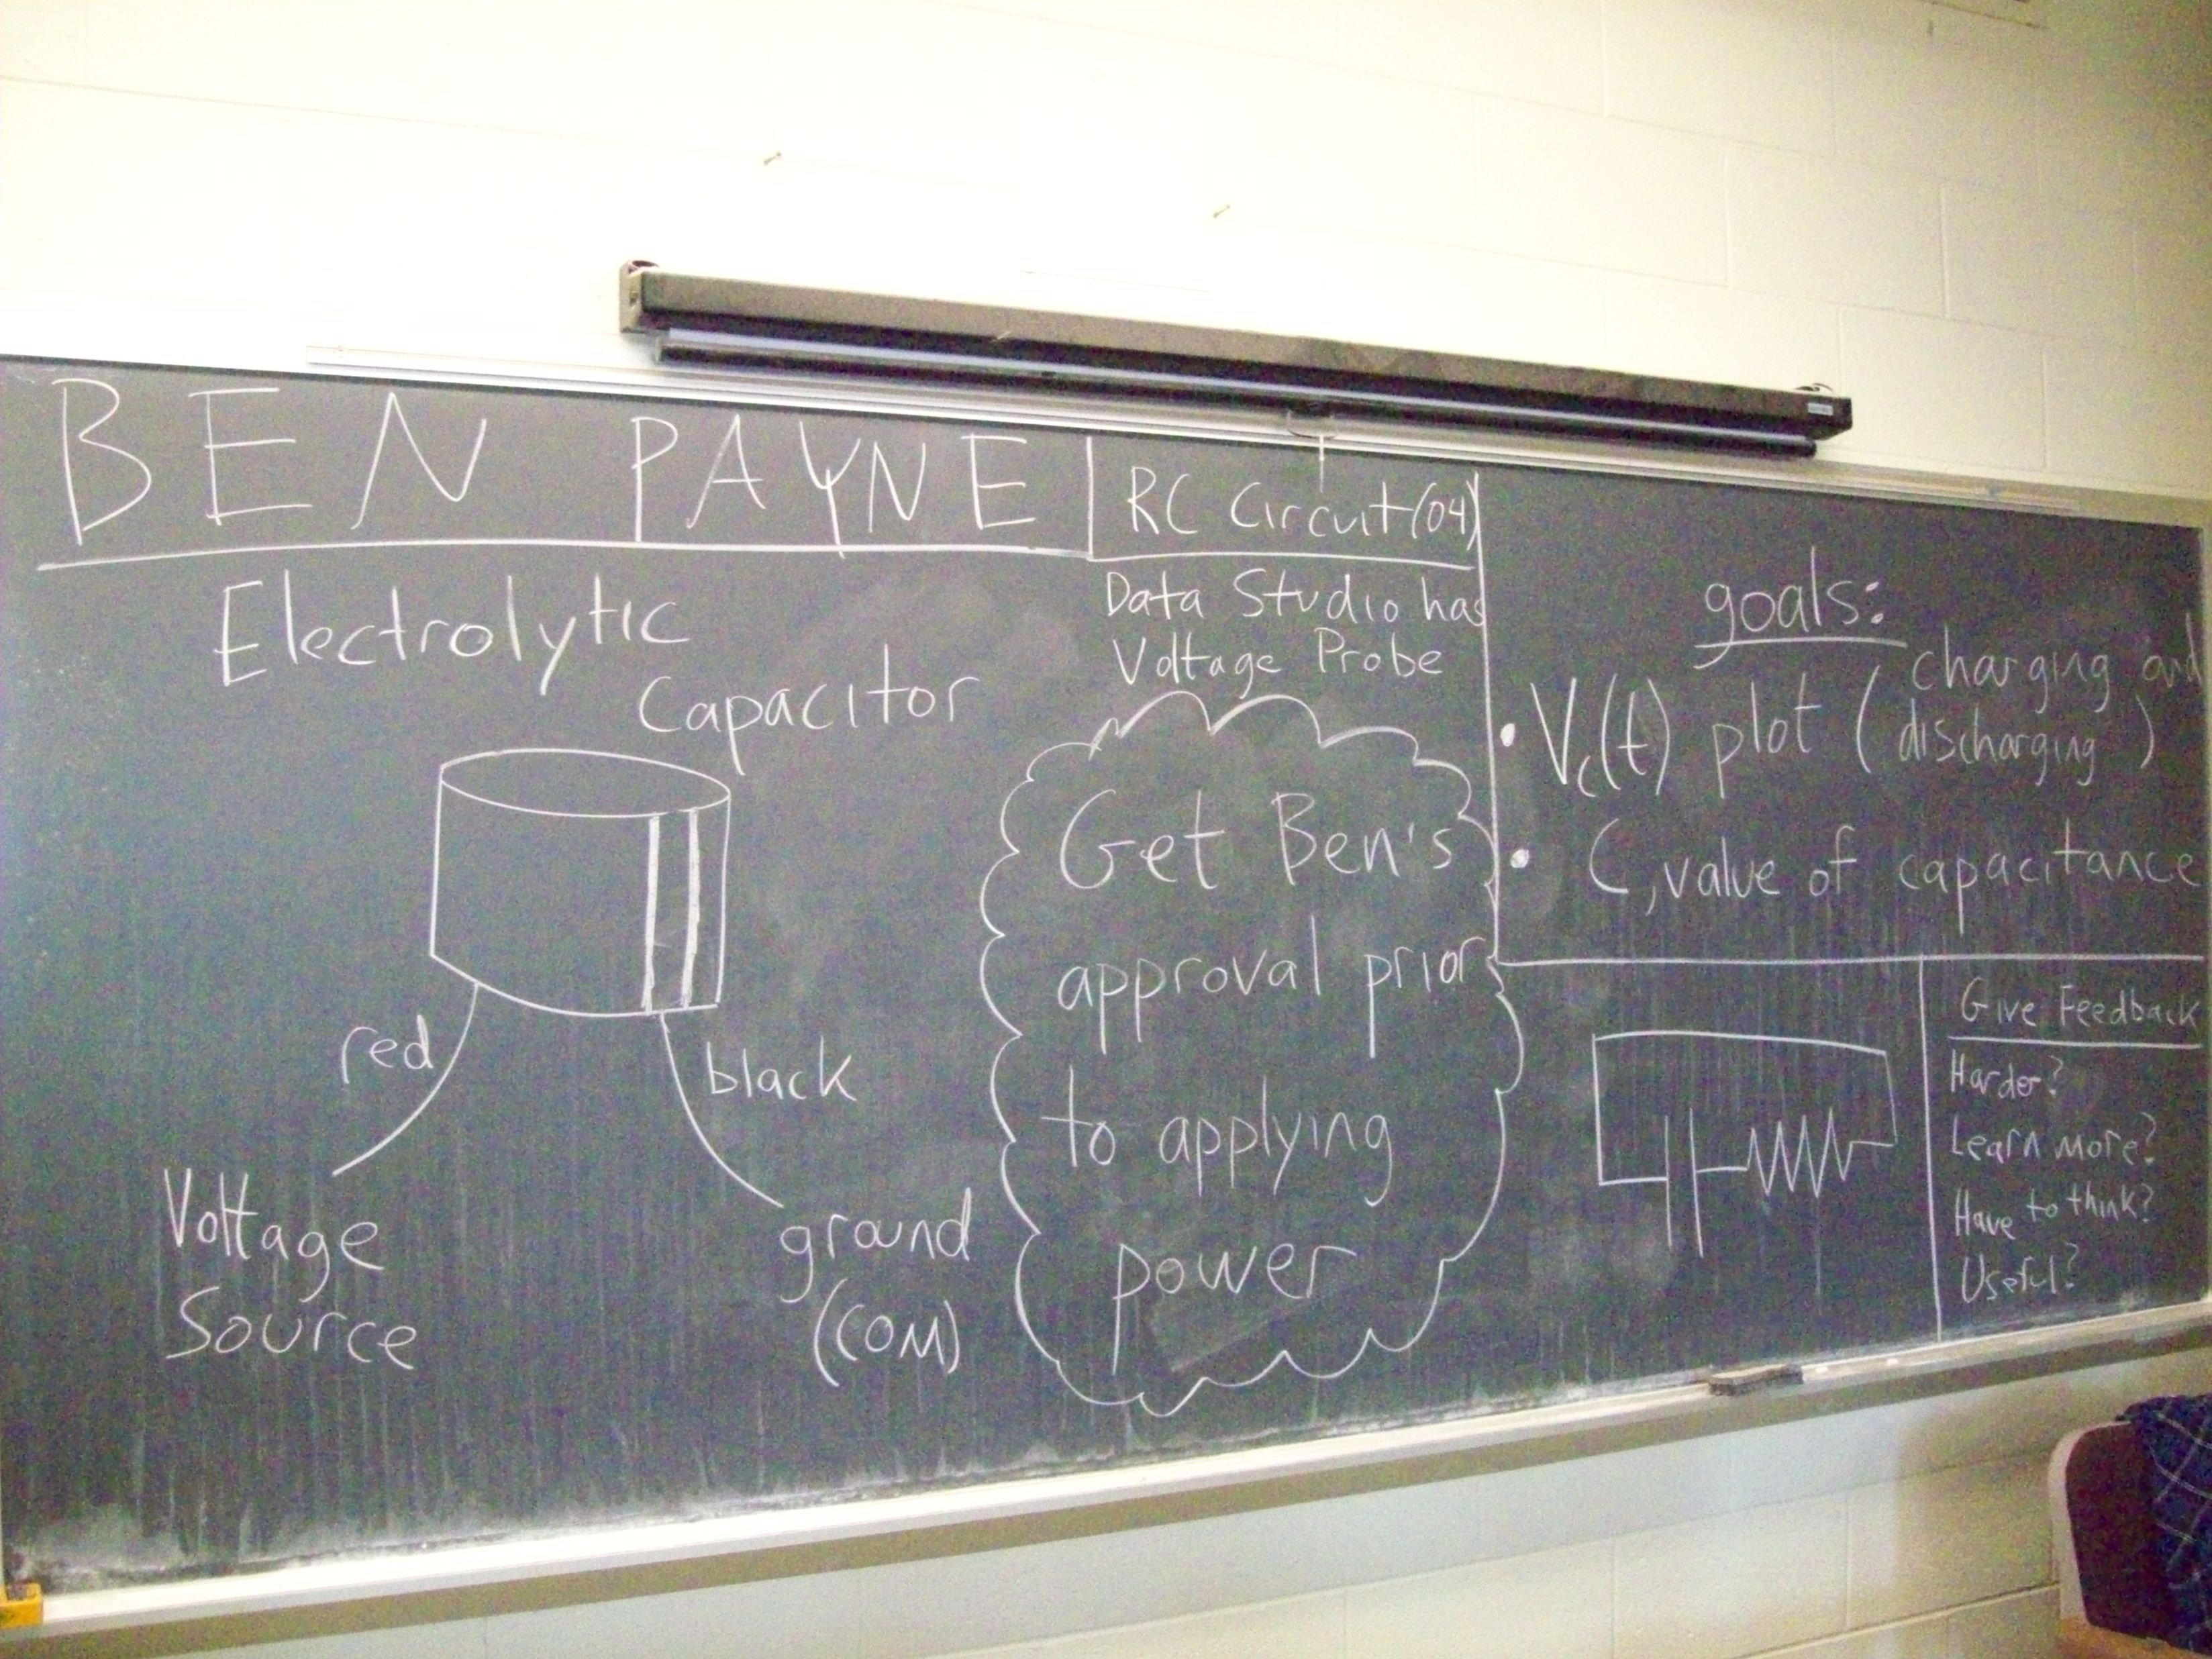 BEN PAYNE
Electrolytic
Capacitor
red
black
Voltage
Source
ground
(COM)
RC Circuit (04)
Data Studio has
Voltage Probe
Get Ben's
approval prior
to applying
power
goals:
• Vc(t) plot (charging and
discharging)
• C, value of capacitance
Give Feedback
Harder?
Learn more?
Have to think?
Useful?